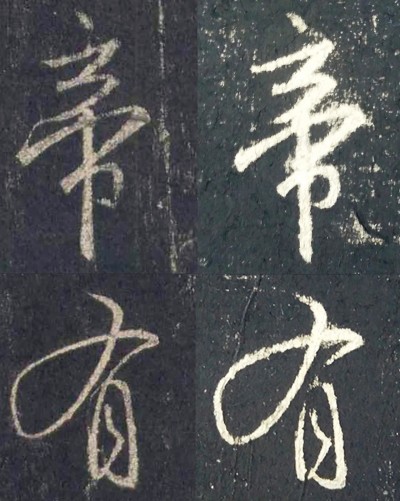 帝帝
有有